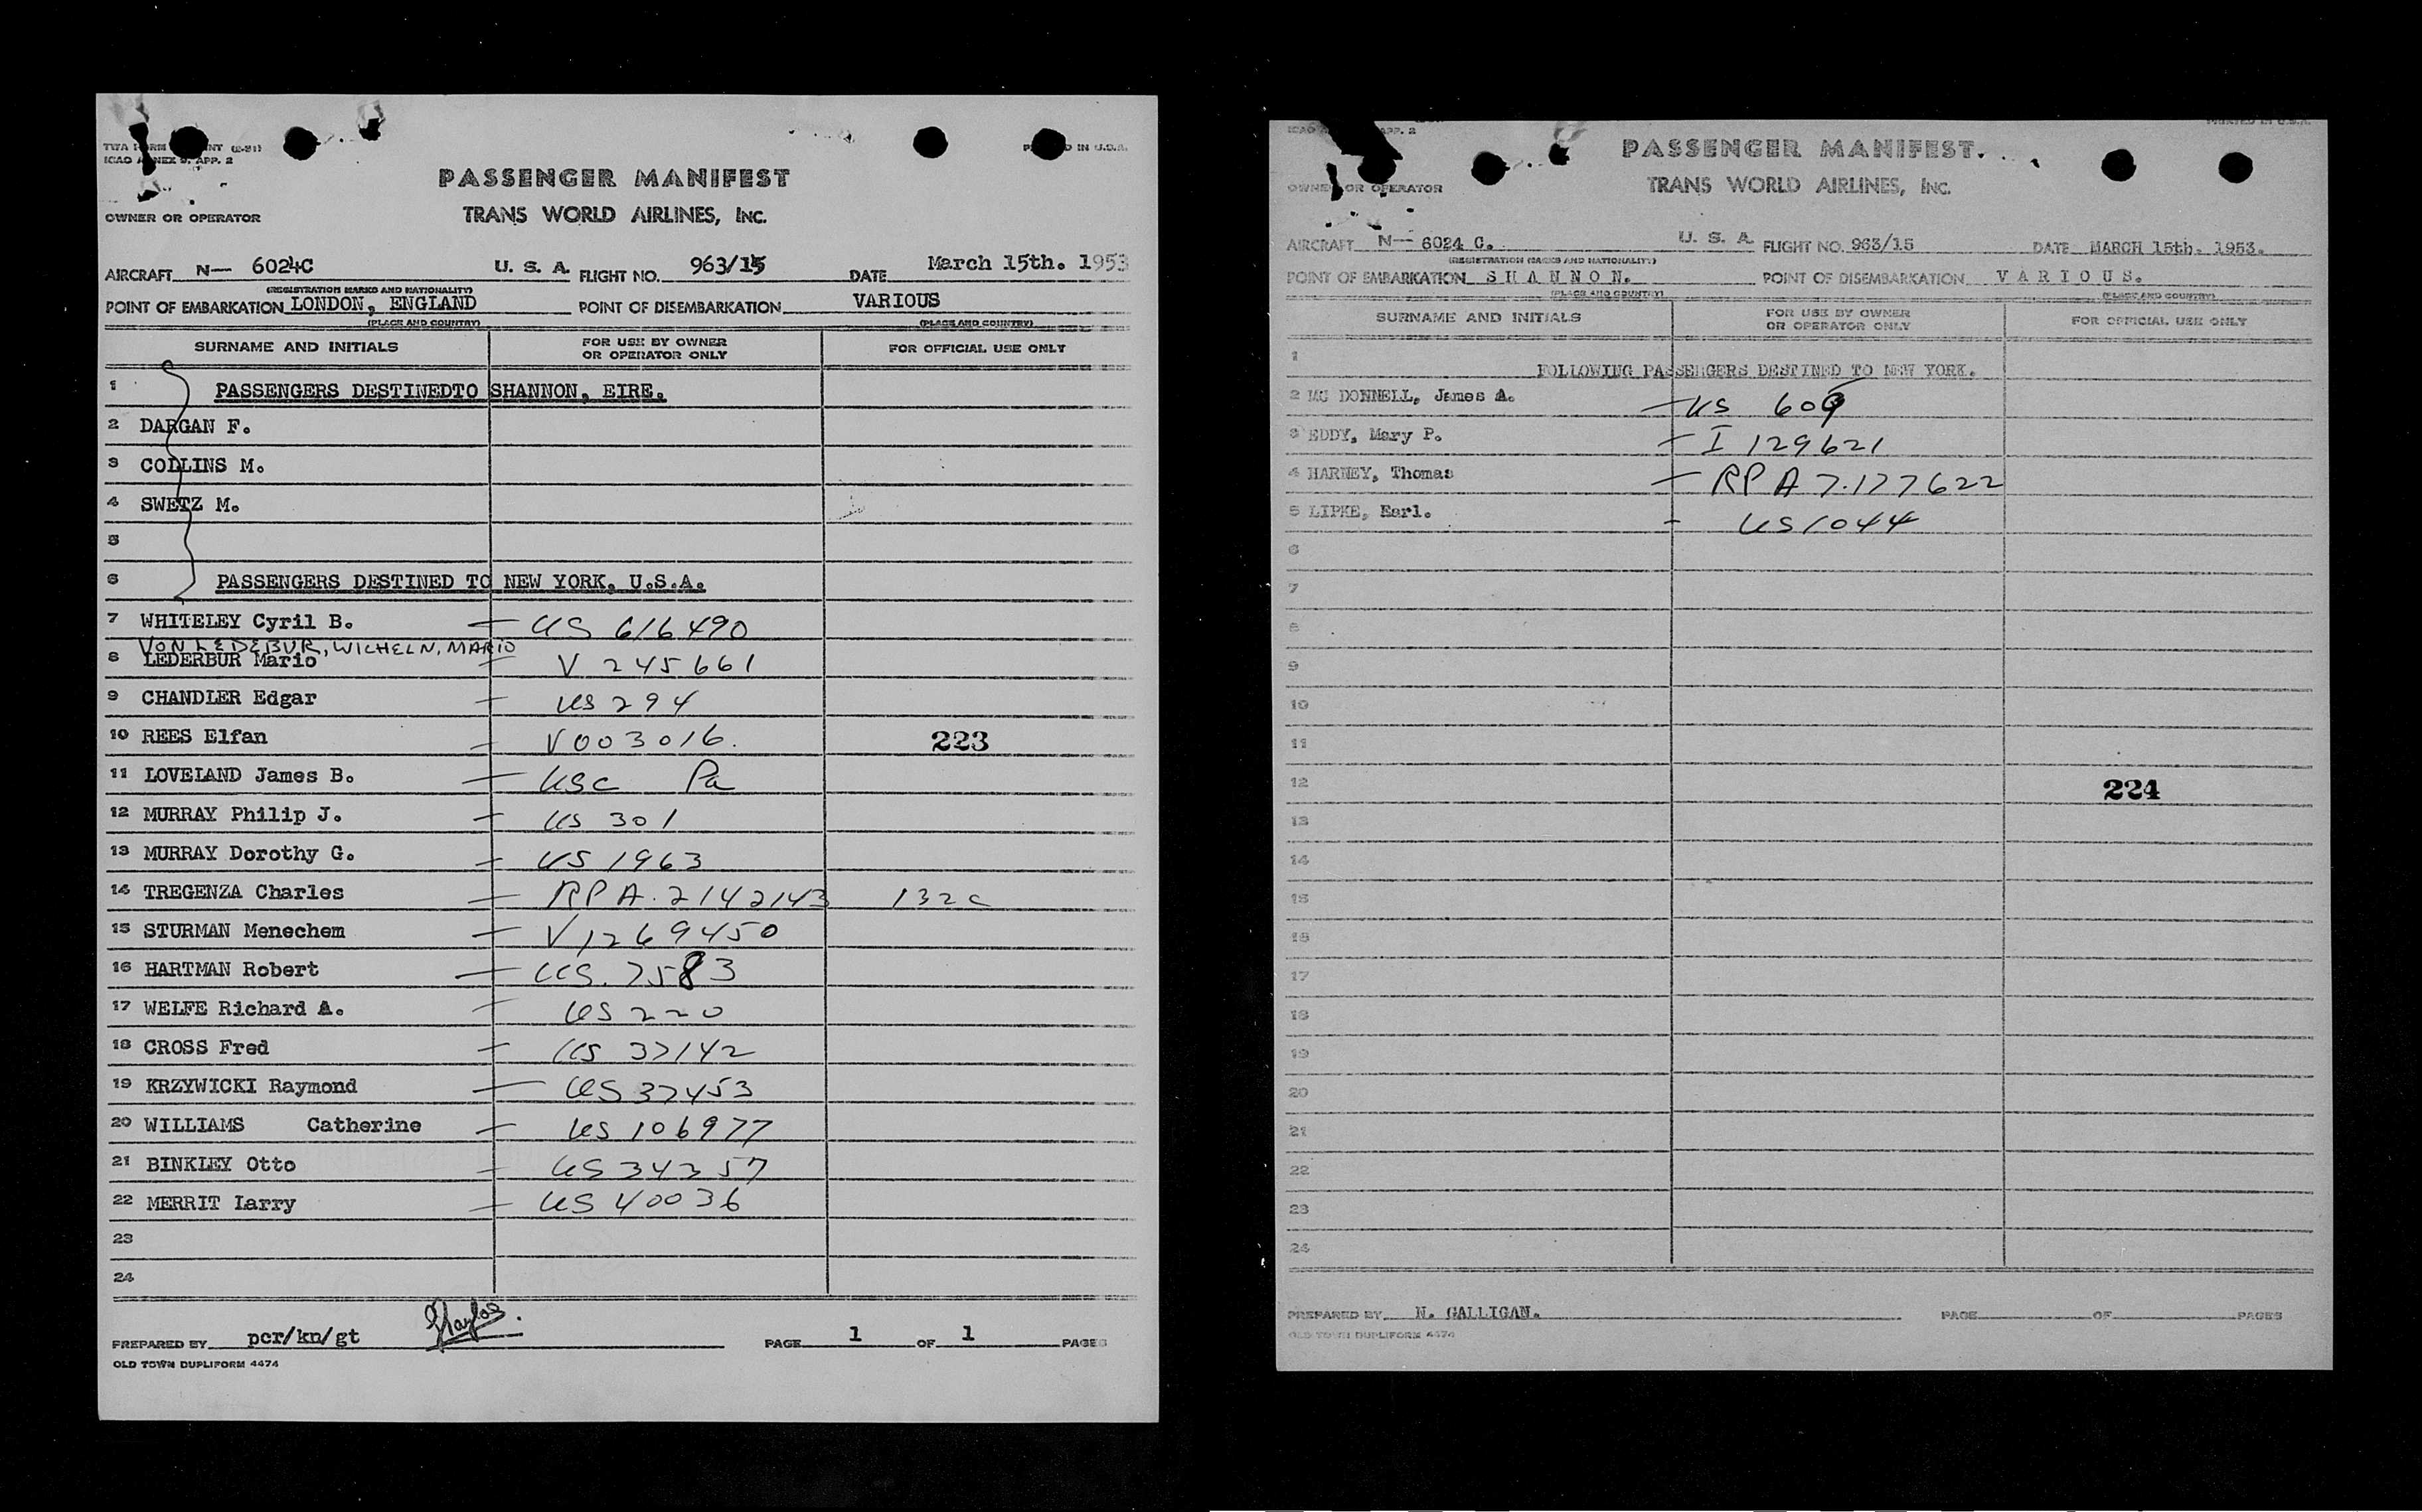 TWA FORM NT (2-51)
ICAO ANNEX 9. APP. 2
D IN U.S.A.
PASSENGER MANIFEST
OWNER OR OPERATOR
TRANS WORLD AIRLINES, INC.
AIRCRAFT N— 6024C U. S. A. FLIGHT NO. 963/15 DATE March 15th. 1953
(REGISTRATION MARKS AND NATIONALITY)
POINT OF EMBARKATION LONDON, ENGLAND POINT OF DISEMBARKATION VARIOUS
(PLACE AND COUNTRY) (PLACE AND COUNTRY)
SURNAME AND INITIALS FOR USE BY OWNER OR OPERATOR ONLY FOR OFFICIAL USE ONLY
1 PASSENGERS DESTINEDTO SHANNON, EIRE.
2 DARGAN F.
3 COLLINS M.
4 SWETZ M.
5
6 PASSENGERS DESTINED TO NEW YORK, U.S.A.
7 WHITELEY Cyril B. — US 616490
VON LEDEBUR, WILHELN, MARIO
8 LEDERBUR Mario — V 245661
9 CHANDLER Edgar — US 294
10 REES Elfan — V003016. 223
11 LOVELAND James B. — USC Pa
12 MURRAY Philip J. — US 301
13 MURRAY Dorothy G. — US 1963
14 TREGENZA Charles — RP A. 2142143 132c
15 STURMAN Menechem — V1269450
16 HARTMAN Robert — US. 7583
17 WELFE Richard A. — US 220
18 CROSS Fred — US 37142
19 KRZYWICKI Raymond — US 37453
20 WILLIAMS Catherine — US 106977
21 BINKLEY Otto — US 34357
22 MERRIT Larry — US 40036
23
24
PREPARED BY pcr/kn/gt PAGE 1 OF 1 PAGES
OLD TOWN DUPLIFORM 4474
ICAO APP. 2
PRINTED IN U.S.A.
PASSENGER MANIFEST.
OWNER OR OPERATOR
TRANS WORLD AIRLINES, INC.
AIRCRAFT N— 6024 C. U. S. A. FLIGHT NO. 963/15 DATE MARCH 15th. 1953.
(REGISTRATION MARKS AND NATIONALITY)
POINT OF EMBARKATION S H A N N O N. POINT OF DISEMBARKATION V A R I O U S.
(PLACE AND COUNTRY) (PLACE AND COUNTRY)
SURNAME AND INITIALS FOR USE BY OWNER OR OPERATOR ONLY FOR OFFICIAL USE ONLY
1 FOLLOWING PASSENGERS DESTINED TO NEW YORK.
2 MC DONNELL, James A. — US 609
3 EDDY, Mary P. — I 129621
4 HARNEY, Thomas — RP A 7.177622
5 LIPKE, Earl. - US 1044
6
7
8
9
10
11
12 224
13
14
15
16
17
18
19
20
21
22
23
24
PREPARED BY N. GALLIGAN. PAGE OF PAGES
OLD TOWN DUPLIFORM 4474